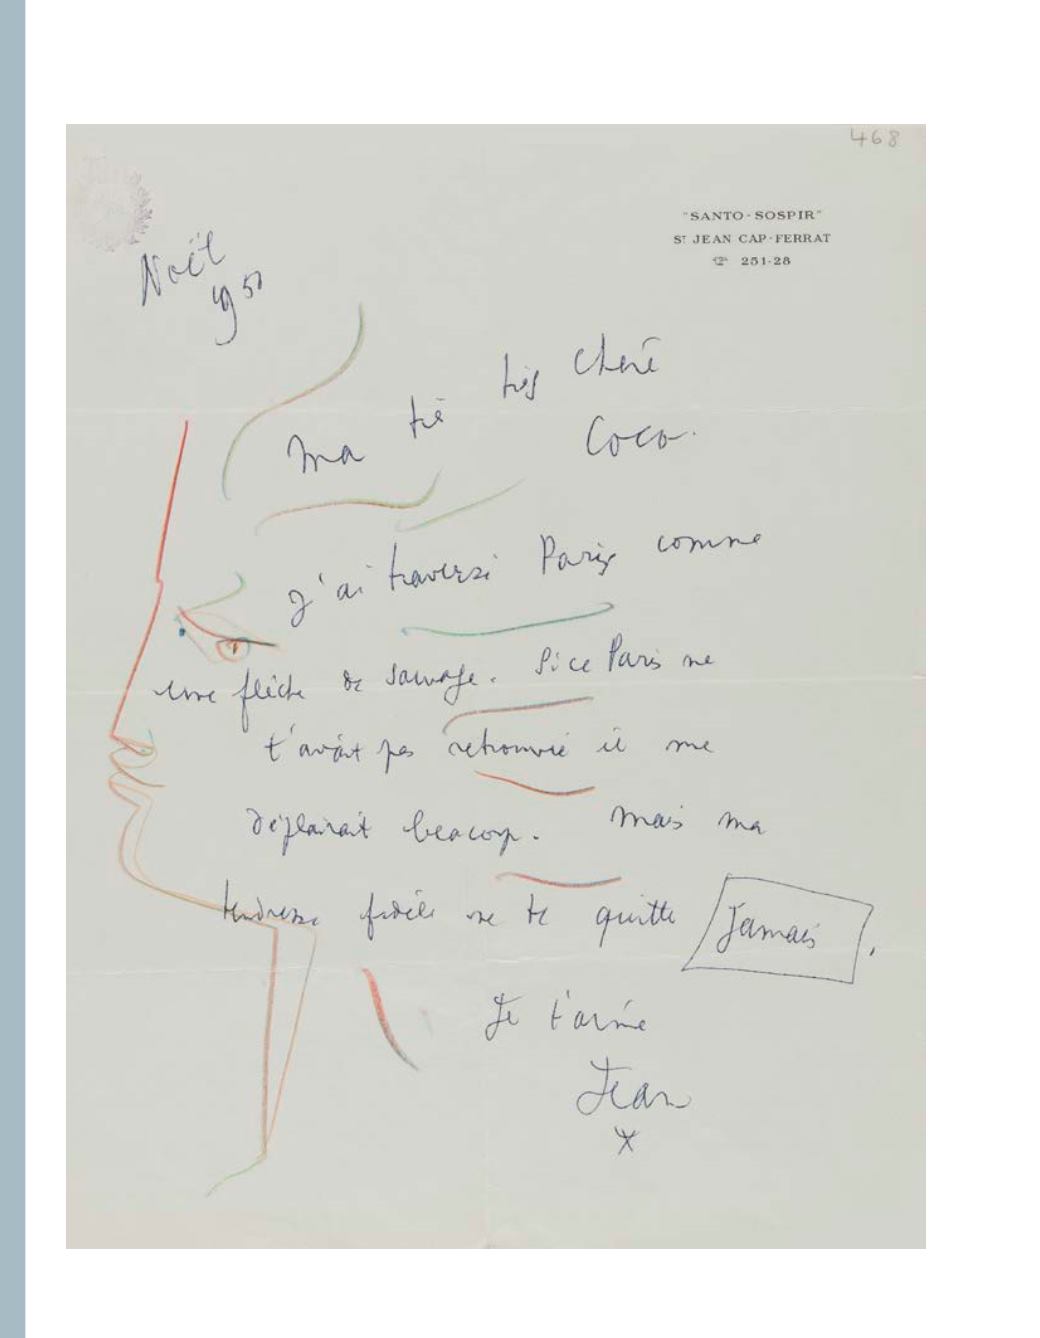 468
"SANTO-SOSPIR"
ST JEAN CAP-FERRAT
251-28
Noël
1950
Ma trè très chère
Coco.
J'ai traversé Paris comme
une flèche de sauvage. Si ce Paris ne
t'avait pas retrouvée il me
déplairait beacoup. Mais ma
tendresse fidèle ne te quitte Jamais.
Je t'aime
Jean